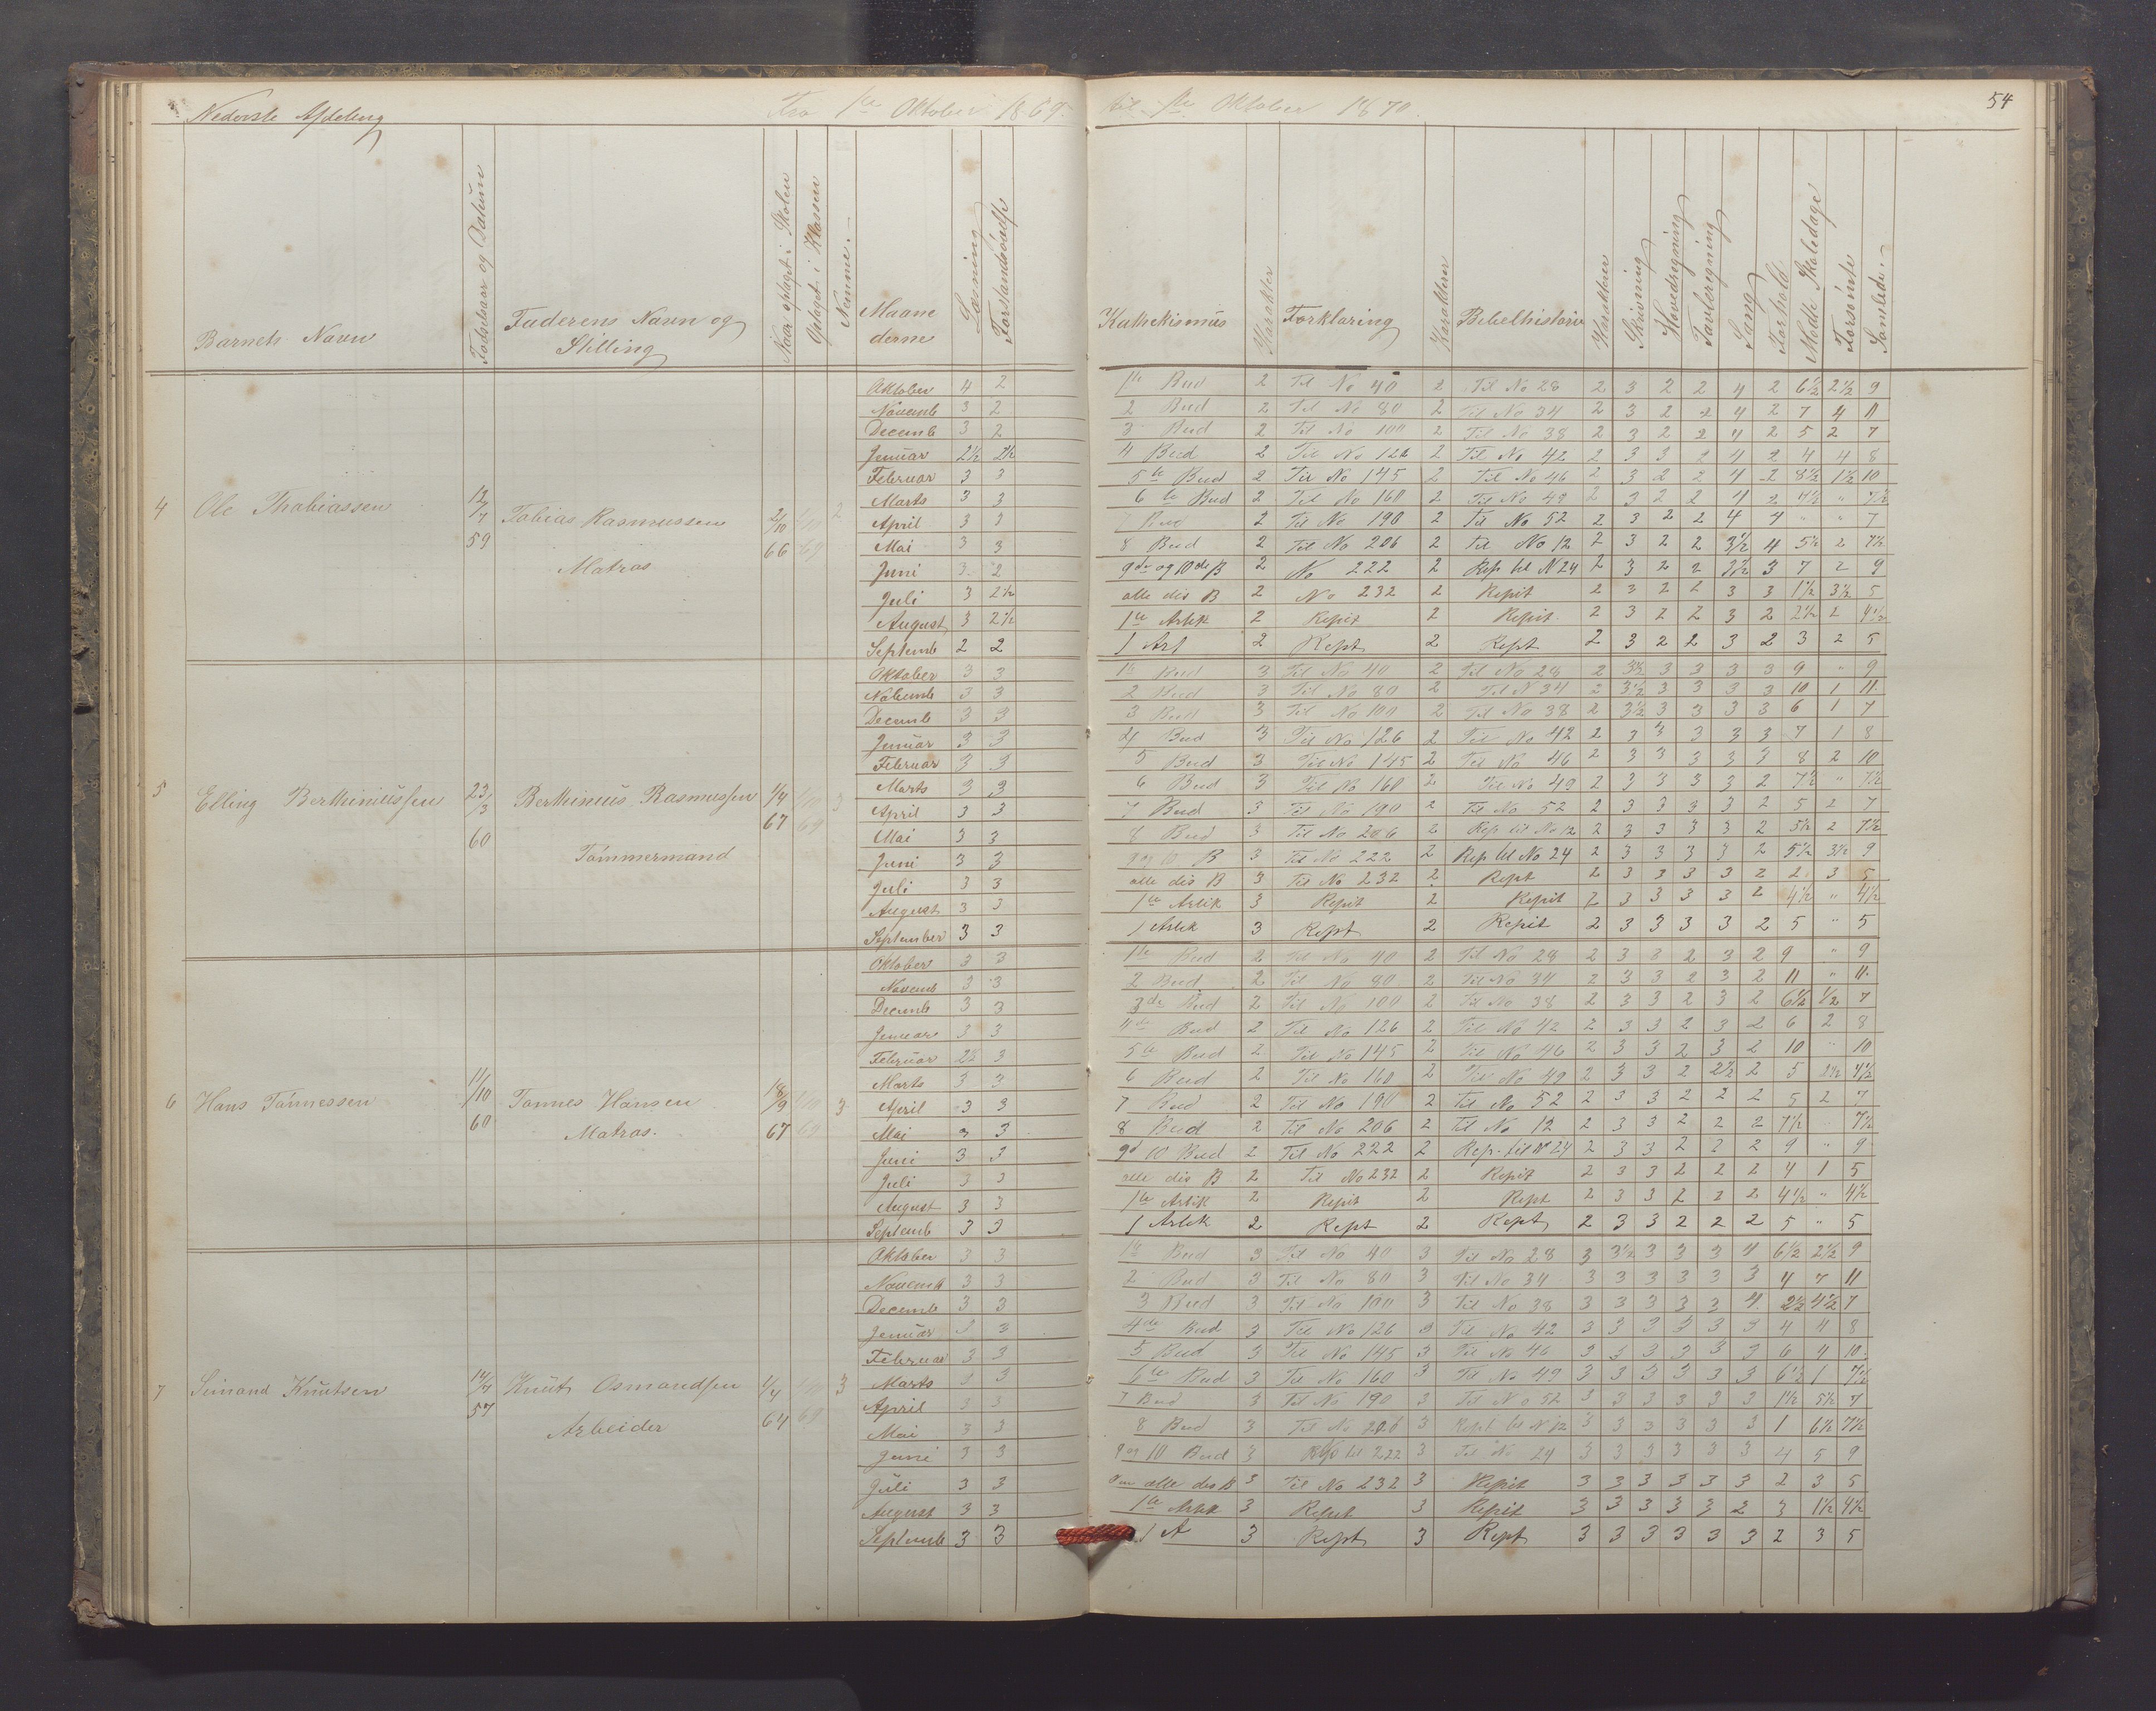 Nederste Afdeling Fra 1ste Oktober 1869. til 1ste Oktober 1870. 54
Barnets Navn Fødselsaar og Datum Faderens Navn og Stilling Naar optaget i Skolen Optaget i Klassen Nemme. Maanederne Læsning Forstandsøvelse Kathekismus Karakter Forklaring Karakter Bibelhistorie Karakter Skrivning Hovedregning Tavleregning Sang Forhold Mødte Skoledage Forsømte Samlede.
4 Ole Thobiassen 12/7 59 Tobias Rasmussen Matros 2/10 66 1/10 69 2
Oktober 4 2 1ste Bud 2 Til No 40 2 Til No 28 2 3 2 2 4 2 6½ 2½ 9
Novemb 3 2 2 Bud 2 Til No 80 2 Til No 34 2 3 2 2 4 2 7 4 11
Decemb 3 2 3 Bud 2 Til No 100 2 Til No 38 2 3 2 2 4 2 5 2 7
Januar 2½ 2½ 4 Bud 2 Til No 126 2 Til No 42 2 3 3 2 4 2 4 4 8
Februar 3 3 5te Bud 2 Til No 145 2 Til No 46 2 3 2 2 4 2 8½ 1½ 10
Marts 3 3 6te Bud 2 Til No 160 2 Til No 49 2 3 2 2 4 2 7½ " 7½
April 3 3 7 Bud 2 Til No 190 2 Til No 52 2 3 2 2 4 4 " " 7
Mai 3 3 8 Bud 2 Til No 206 2 Til No 12 2 3 2 2 3½ 4 5½ 2 7½
Juni 3 2 9de og 10de B 2 No 222 2 Rep til N 24 2 3 2 2 3½ 3 7 2 9
Juli 3 2½ alle dis B 2 No 232 2 Repit 2 3 2 2 3 3 1½ 3½ 5
August 3 2½ 1te Artik 2 Repit 2 Repit. 2 3 2 2 3 2 2½ 2 4½
Septemb 2 2 1 Art 2 Rept 2 Rept 2 3 2 2 3 2 3 2 5
5 Elling Berthiniussen 23/3 60 Berthinius Rasmussen Tømmermand 1/4 67 1/10 69 3
Oktober 3 3 1te Bud 3 Til No 40 2 Til No 28 2 3½ 3 3 3 3 9 " 9
Novemb 3 3 2 Bud 3 Til No 80 2 Til N 34 2 3½ 3 3 3 3 10 1 11.
Decemb 3 3 3 Bud 3 Til No 100 2 Til No 38 2 3½ 3 3 3 3 6 1 7
Januar 3 3 4 Bud 3 Til No 126 2 Til No 42 2 3 3 3 3 3 7 1 8
Februar 3 3 5 Bud 3 Til No 145 2 Til No 46 2 3 3 3 3 3 8 2 10
Marts 3 3 6 Bud 3 Til No 160 2 Til No 49 2 3 3 3 3 2 7½ " 7½
April 3 3 7 Bud 3 Til No 190 2 Til No 52 2 3 3 3 3 2 5 2 7
Mai 3 3 8 Bud 3 Til No 206 2 Rep til No 12 2 3 3 3 3 2 5½ 2 7½
Juni 3 3 9 og 10 B 3 Til No 222 2 Rep til No 24 2 3 3 3 3 2 5½ 3½ 9
Juli 3 3 alle dis B 3 Til No 232 2 Rept 2 3 3 3 3 2 2 3 5
August 3 3 1te Artik 3 Repit 2 Repit 2 3 3 3 3 2 4½ " 4½
September 3 3 1 Artik 3 Rept 2 Repit 2 3 3 3 3 2 5 " 5
6 Hans Tønnessen 11/10 60 Tønnes Hansen Matros. 18/9 67 1/10 69 3
Oktober 3 3 1te Bud 2 Til No 40 2 Til No 28 2 3 3 2 3 2 9 " 9
Novemb 3 3 2 Bud 2 Til No 80 2 Til No 34 2 3 3 2 3 2 11 " 11.
Decemb 3 3 3de Bud 2 Til No 100 2 Til No 38 2 3 3 2 3 2 6½ ½ 7
Januar 3 3 4de Bud 2 Til No 126 2 Til No 42 2 3 3 2 3 2 6 2 8
Februar 2½ 3 5te Bud 2 Til No 145 2 Til No 46 2 3 3 2 3 2 10 " 10
Marts 3 3 6 Bud 2 Til No 160 2 Til No 49 2 3 3 2 2½ 2 5 2½ 7½
April 3 3 7 Bud 2 Til No 190 2 Til No 52 2 3 3 2 2 2 5 2 7
Mai 3 3 8 Bud 2 Til No 206 2 Til No 12 2 3 3 2 2 2 7½ " 7½
Juni 3 3 9 10 Bud 2 Til No 222 2 Rep. til N 24 2 3 3 2 2 2 9 " 9
Juli 3 3 alle dis B 2 Til No 232 2 Repit 2 3 3 2 2 2 4 1 5
August 3 3 1te Artik 2 Repit 2 Rept 2 3 3 2 2 2 4½ " 4½
Septemb 3 3 1 Artik 2 Rept 2 Rept 2 3 3 2 2 2 5 " 5
7 Simand Knutsen 14/7 57 Knut Osmandsen Arbeider 1/4 64 1/10 69 3
Oktober 3 3 1te Bud 3 Til No 40 3 Til No 28 3 3½ 3 3 3 4 6½ 2½ 9
Novemb 3 3 2 Bud 3 Til No 80 3 Til No 34 3 3 3 3 3 3 4 7 11
Decemb 3 3 3 Bud 3 Til No 100 3 Til No 38 3 3 3 3 3 4. 2½ 4½ 7
Januar 3 3 4de Bud 3 Til No 126 3 Til No 42 3 3 3 3 3 3 4 4 8
Februar 3 3 5 Bud 3 Til No 145 3 Til No 46 3 3 3 3 3 3 6 4 10.
Marts 3 3 6te Bud 3 Til No 160 3 Til No 49 3 3 3 3 3 3 6½ 1 7½
April 3 3 7 Bud 3 Til No 190 3 Til No 52 3 3 3 3 3 3 1½ 5½ 7
Mai 3 3 8 Bud 3 Til No 206 3 Rept til N 12 3 3 3 3 3 3 1 6½ 7½
Juni 3 3 9 og 10 Bud 3 Rep til 222 3 Til No 24 3 3 3 3 3 3 4 5 9
Juli 3 3 alle dis B 3 Til No 232 3 Repit 3 3 3 3 3 3 2 3 5
August 3 3 1te Artik 3 Repit 3 Repit 3 3 3 3 3 2 3 1½ 4½
Septemb 3 3 1 A 3 Rept 3 Rept 3 3 3 3 3 3 2 3 5